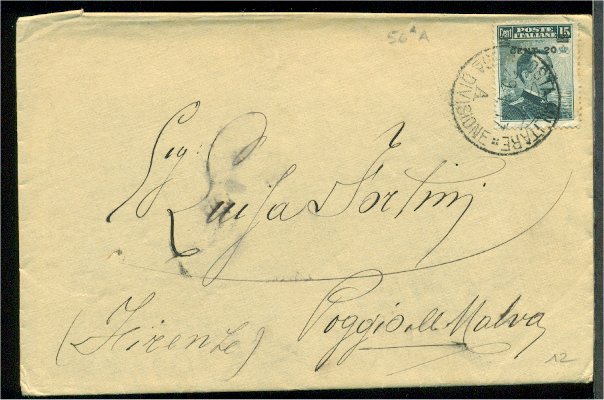 56ª A
Cent POSTE ITALIANE 15
CENT. 20
POSTA MILITARE
A DIVISIONE
Sig:
Luisa Fortini
(Firenze) Poggio alla Malva
12